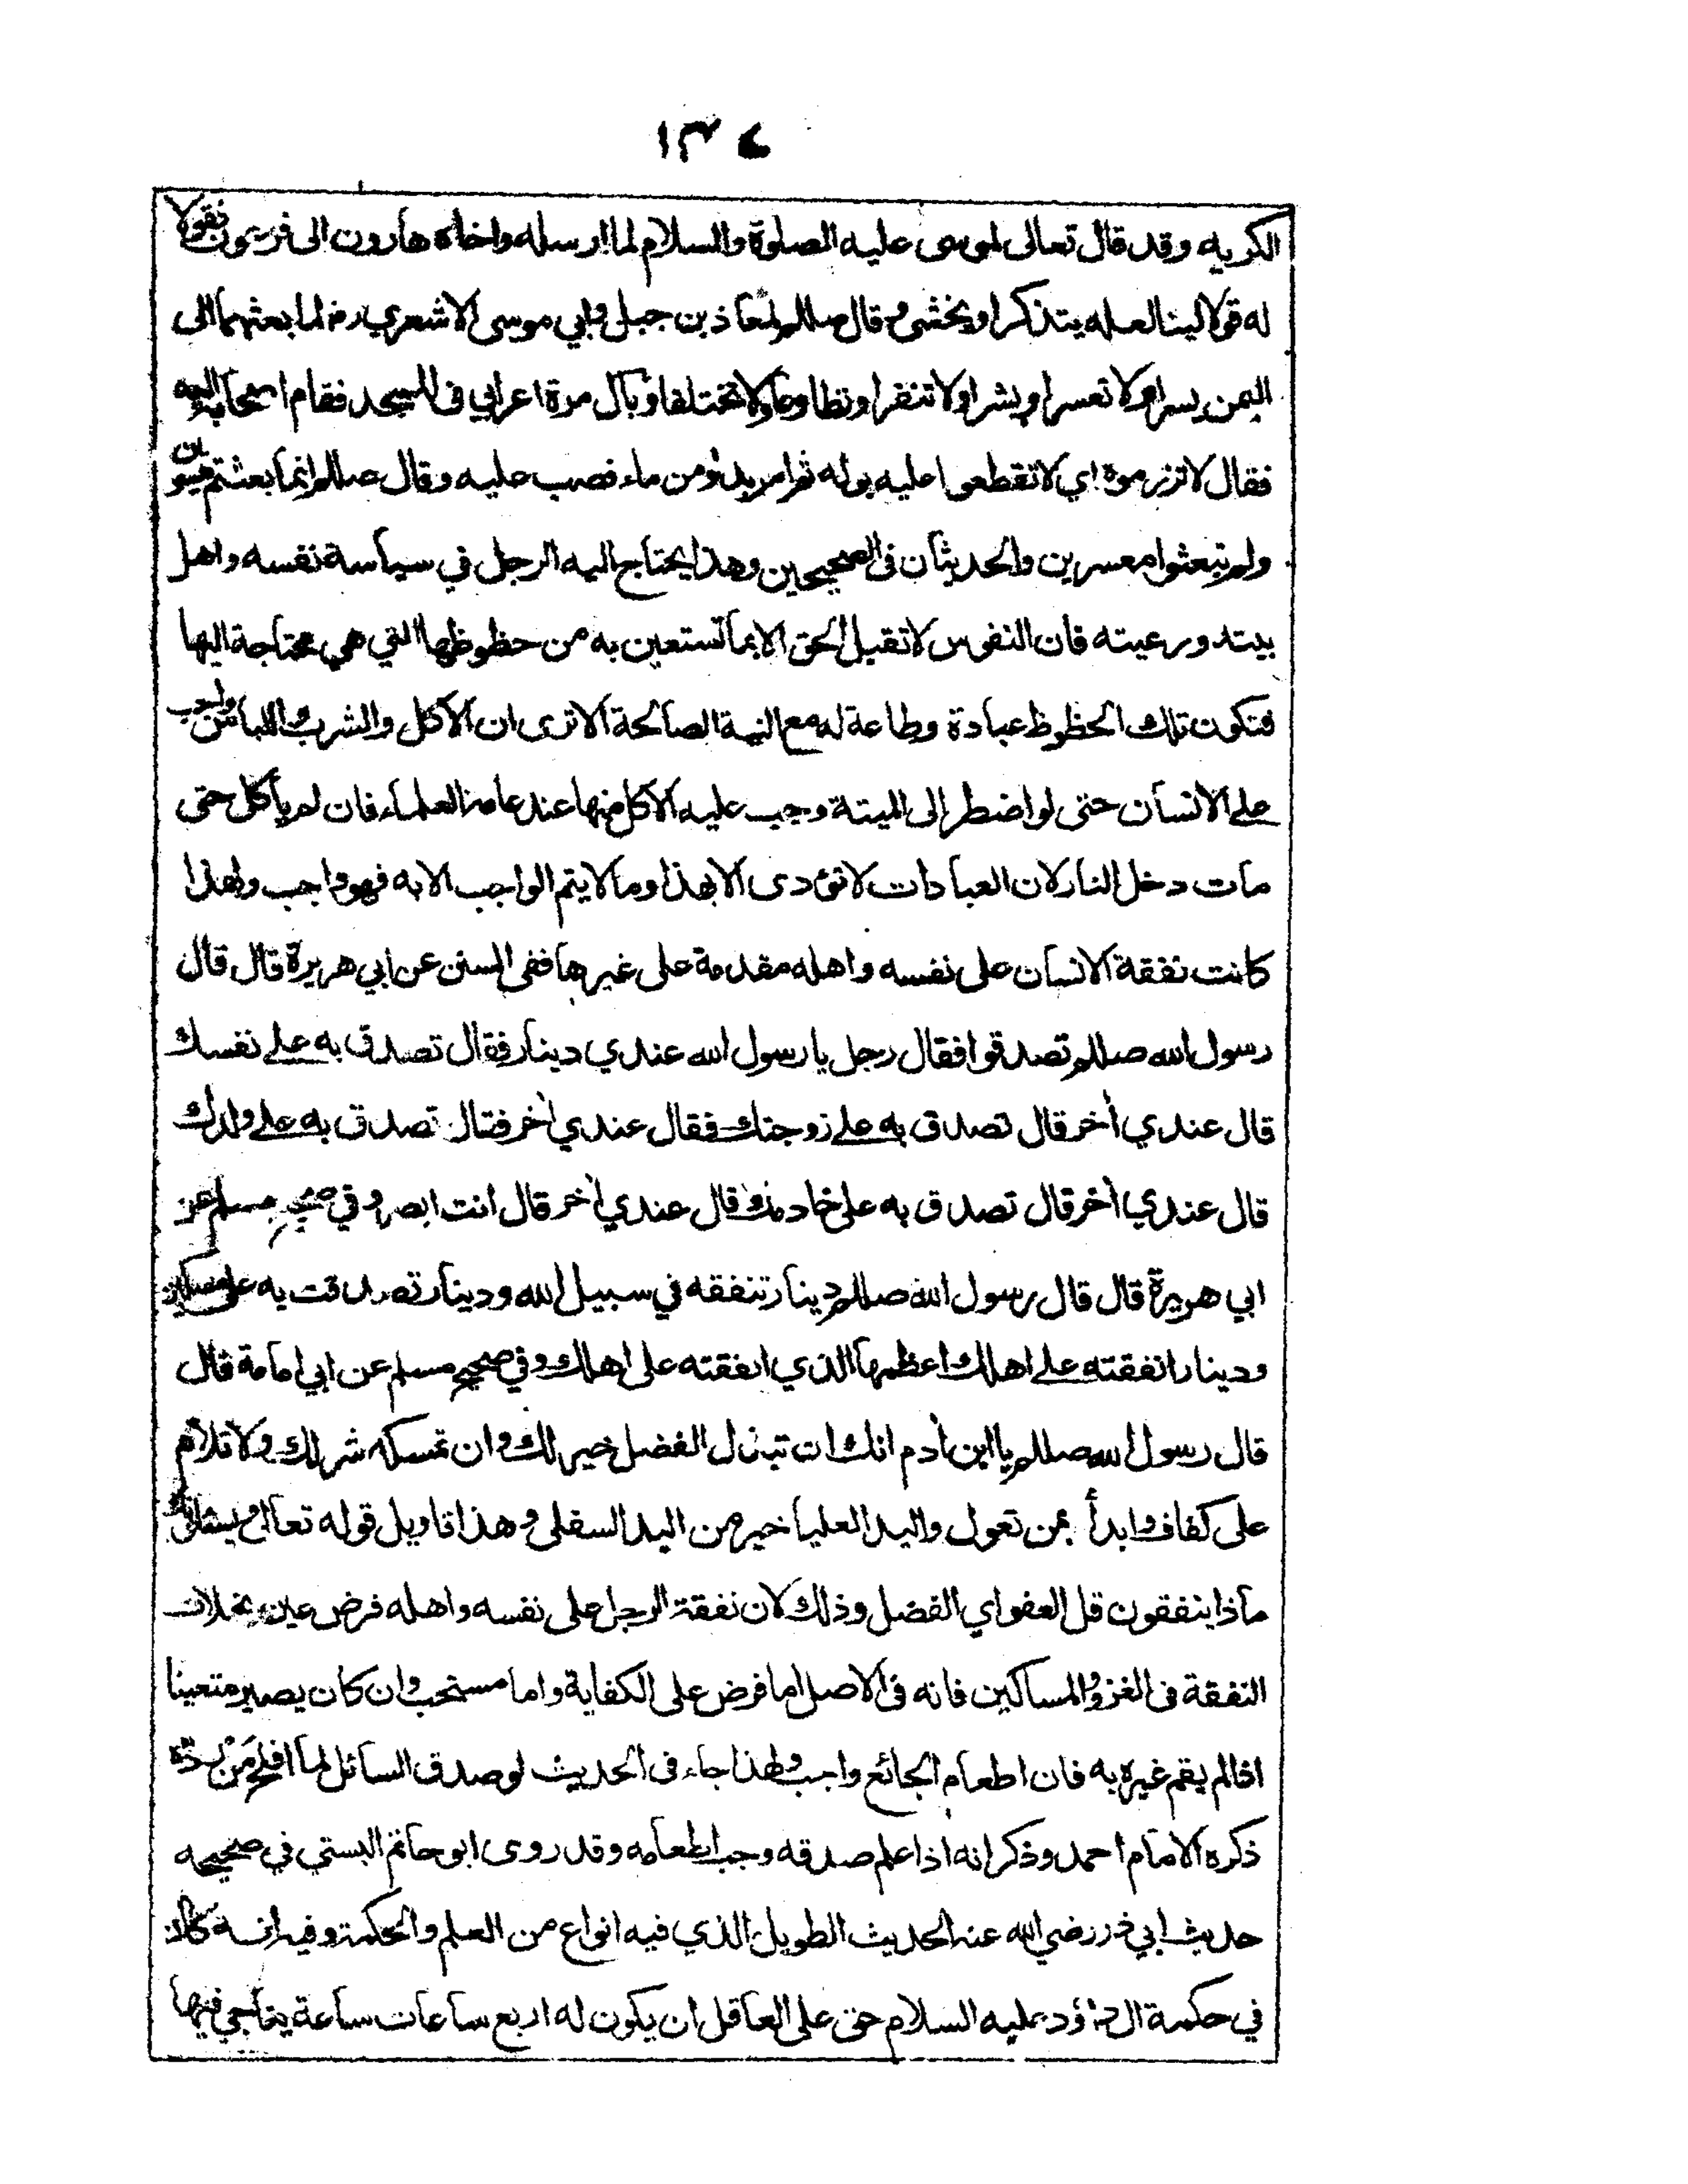 ١٣٤
الكريه وقد قال تعالى لموسى عليه الصلوة والسلام لما ارسله واخاه هارون الى فرعون فقولا
له قولا لينا لعله يتذكر او يخشى وقال صللم لمعاذ بن جبل وابي موسى الاشعري رض لما بعثهما الى
اليمن يسرا ولا تعسرا وبشرا ولا تنفرا وتطاوعا ولا تختلفا وبال مرة اعرابي في المسجد فقام اصحابه اليه
فقال لا تزرموه اي لا تقطعوا عليه بوله ثم امر بدلو من ماء فصب عليه وقال صللم انما بعثتم ميسرين
ولم تبعثوا معسرين والحديثان في الصحيحين وهذا يحتاج اليه الرجل في سياسة نفسه واهل
بيته ورعيته فان النفوس لا تقبل الحق الا بما تستعين به من حظوظها التي هي محتاجة اليها
فتكون تلك الحظوظ عبادة وطاعة لله مع النية الصالحة الا ترى ان الاكل والشرب واللباس واجب
على الانسان حتى لو اضطر الى الميتة وجب عليه الاكل منها عند عامة العلماء فان لم يأكل حتى
مات دخل النار لان العبادات لا تؤدى الا بهذا وما لا يتم الواجب الا به فهو واجب ولهذا
كانت نفقة الانسان على نفسه واهله مقدمة على غيرها ففي السنن عن ابي هريرة قال قال
رسول الله صللم تصدقوا فقال رجل يا رسول الله عندي دينار فقال تصدق به على نفسك
قال عندي أخر قال تصدق به على زوجتك فقال عندي أخر فقال تصدق به على ولدك
قال عندي أخر قال تصدق به على خادمك قال عندي أخر قال انت ابصر وفي صحيح مسلم عن
ابي هريرة قال قال رسول الله صللم دينار تنفقه في سبيل الله ودينار تصدقت به على مسكين
ودينار انفقته على اهلك اعظمها الذي انفقته على اهلك وفي صحيح مسلم عن ابي امامة قال
قال رسول الله صللم يا ابن أدم انك ان تبذل الفضل خير لك وان تمسكه شر لك ولا تلام
على كفاف وابدأ بمن تعول واليد العليا خير من اليد السفلى وهذا تاويل قوله تعالى ويسئلونك
ماذا ينفقون قل العفو اي الفضل وذلك لان نفقة الرجل على نفسه واهله فرض عين بخلاف
النفقة في الغزو والمساكين فانه في الاصل اما فرض على الكفاية واما مستحب وان كان يصير متعينا
اذا لم يقم غيره به فان اطعام الجائع واجب ولهذا جاء في الحديث لو صدق السائل لما افلح من رده
ذكره الامام احمد وذكر انه اذا علم صدقه وجب اطعامه وقد روى ابو حاتم البستي في صحيحه
حديث ابي ذر رضي الله عنه الحديث الطويل الذي فيه انواع من العلم والحكمة وفيه انه كان
في حكمة ال داؤد عليه السلام حق على العاقل ان يكون له اربع ساعات ساعة يناجي فيها